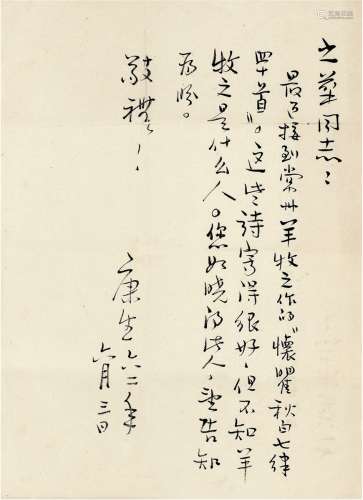 之华同志：
最近接到常州羊牧之作的“懷瞿秋白七律
四十首”。这些詩寫得很好，但不知羊
牧之是什么人。您如曉得此人，望告知
为盼。
敬禮！
康生 六二年
六月三日